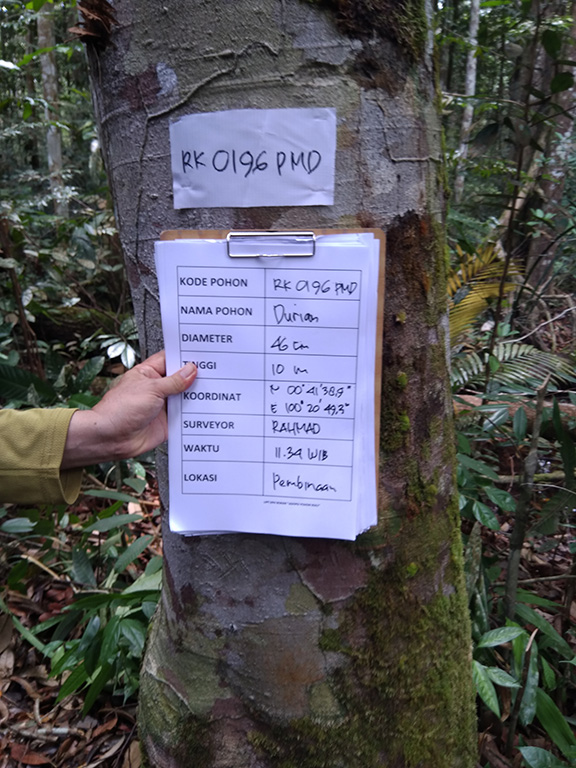 RK 0196 PMD
KODE POHON RK 0196 PMD
NAMA POHON Durian
DIAMETER 46 cm
TINGGI 10 m
KOORDINAT N 00° 41' 38,9"
E 100° 20' 49,3"
SURVEYOR RAHMAD
WAKTU 11.34 WIB
LOKASI Pembinaan